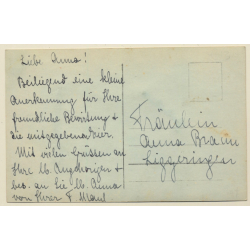 Liebe Anna!
Beiliegend eine kleine
Anerkennung für Ihre
freundliche Bewirtung &
die mitgegebenen
Mit vielen Grüssen an
Ihre lb. Angehörigen &
bes. an Sie lb. Anna
von Ihrer
Fräulein
Anna Braun
Liggeringen